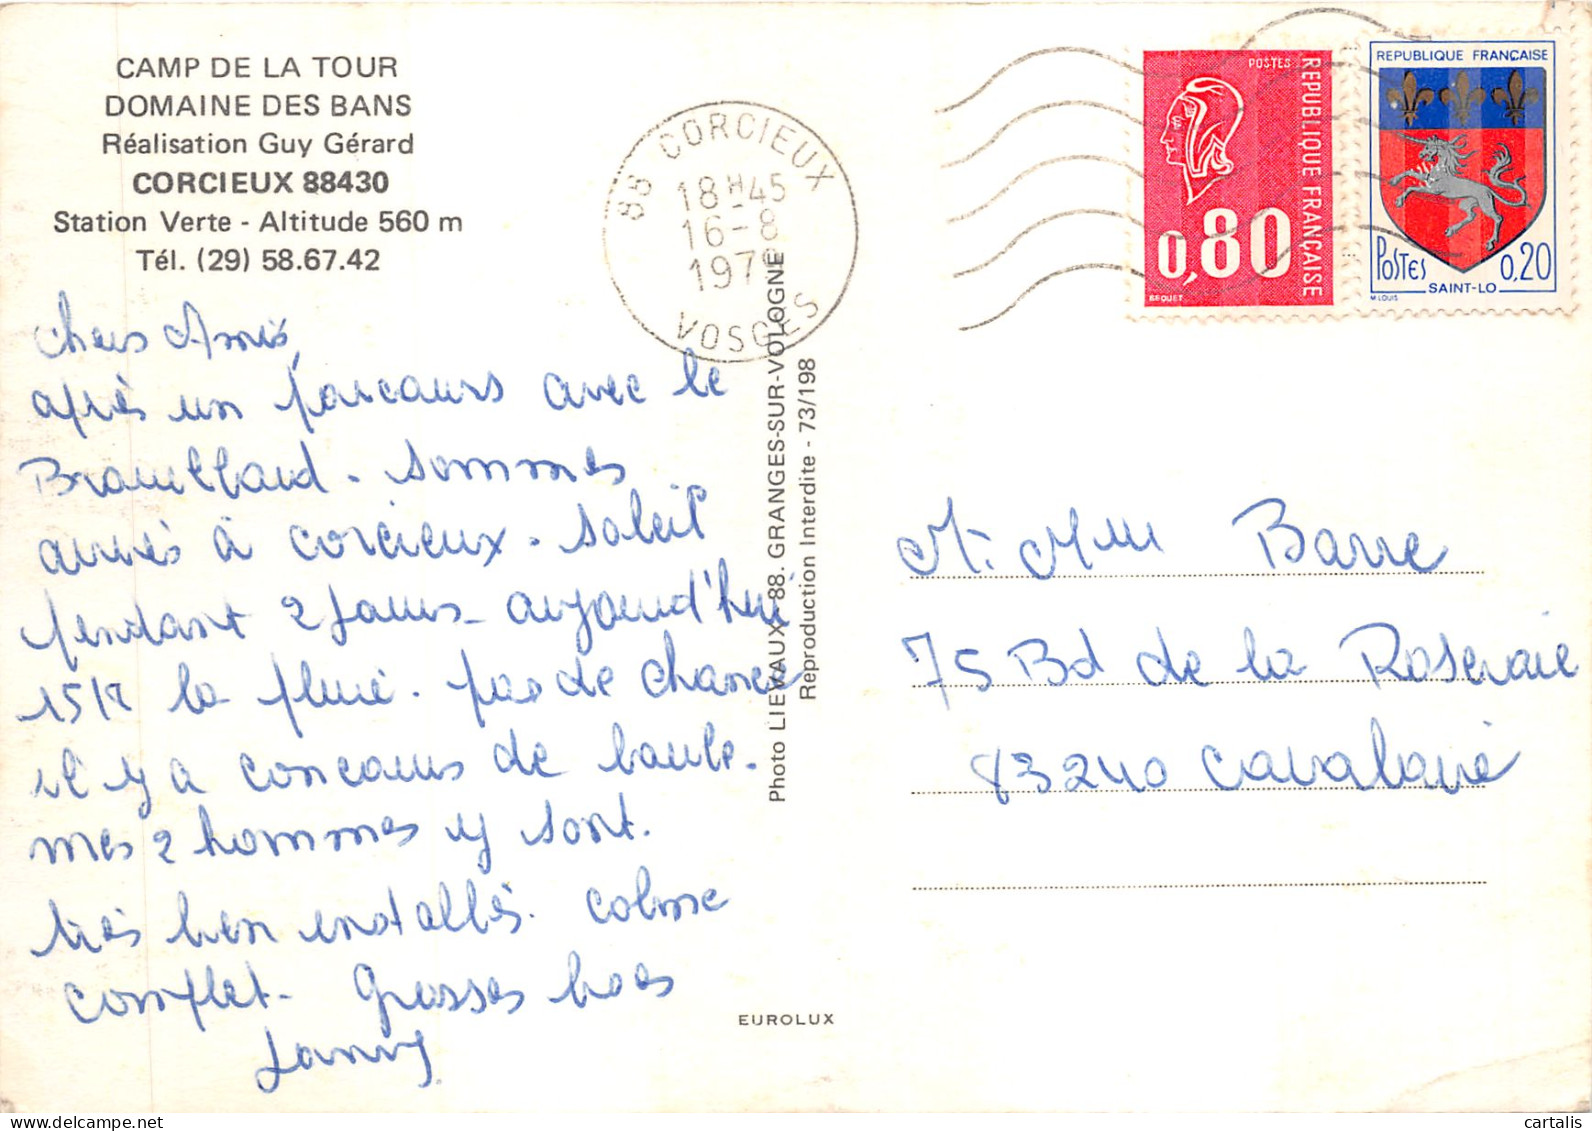 CAMP DE LA TOUR
DOMAINE DES BANS
Réalisation Guy Gérard
CORCIEUX 88430
Station Verte - Altitude 560 m
Tél. (29) 58.67.42
chers Amis,
après un parcours avec le
Brouillard. sommes
arrivés à corcieux. soleil
pendant 2 jours - aujourd'hui
15/8 la pluie. pas de chance
il y a concours de boule.
mes 2 hommes y sont.
très bien installés. calme
complet - Grosses bises
88 CORCIEUX
18H45
16-8
VOSGES
Photo LIEVAUX 88. GRANGES-SUR-VOLOGNE
Reproduction Interdite - 73/198
EUROLUX
POSTES
REPUBLIQUE FRANÇAISE
0,80
BEQUET
REPUBLIQUE FRANÇAISE
POSTES 0,20
SAINT-LO
M. LOUIS
M. Mme Barre
75 Bd de la Roseraie
83240 Cavalaire
cartalis